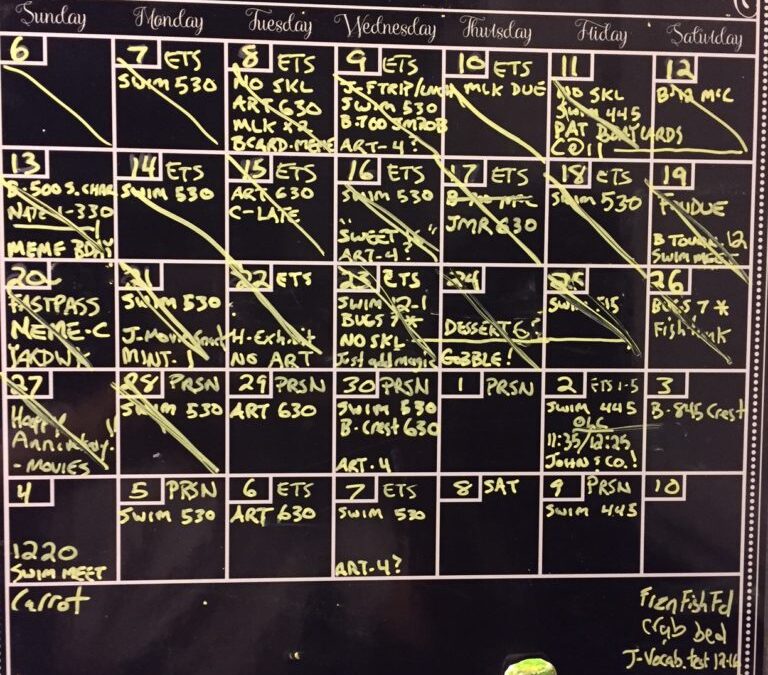 Sunday Monday Tuesday Wednesday Thursday Friday Saturday
6
7 ETS
SWIM 530
8 ETS
NO SKL
ART 630
MLK X2
BCARD-MEME
9 ETS
J-FTRIP/LMCH
SWIM 530
B-700
ART-4?
10 ETS
MLK DUE
11
NO SKL
SWIM 445
PAT
C@11
12
13
B-500 S.
NATE 1-330
MEME BDAY
14 ETS
SWIM 530
15 ETS
ART 630
C-LATE
16 ETS
SWIM 530
"SWEET
ART-4?
17 ETS
JMR 630
18 ETS
SWIM 530
19
FNDUE
B TOURN. 12
SWIM MEET
20
FASTPASS
MEME-C
21
SWIM 530
J-Movie
MINT.
22 ETS
H-Exhibit
NO ART
23 ETS
SWIM 12-1
BUGS 7 *
NO SKL
Just add magic
24
DESSERT 6?
GOBBLE!
25
SWIM
26
BUGS 7 *
Fishtank
27
Happy
Anniversary!!
- MOVIES
28 PRSN
SWIM 530
29 PRSN
ART 630
30 PRSN
SWIM 530
B-Crest 630
ART-4
1 PRSN
2 ETS 1-5
SWIM 445
OLC
11:35/12:25
JOHN & CO.!
3
B-845 Crest
4
1220
SWIM MEET
5 PRSN
SWIM 530
6 ETS
ART 630
7 ETS
SWIM 530
ART-4?
8 SAT
9 PRSN
SWIM 445
10
Carrot
FrznFishFd
crab bed
J-Vocab.test 12-16